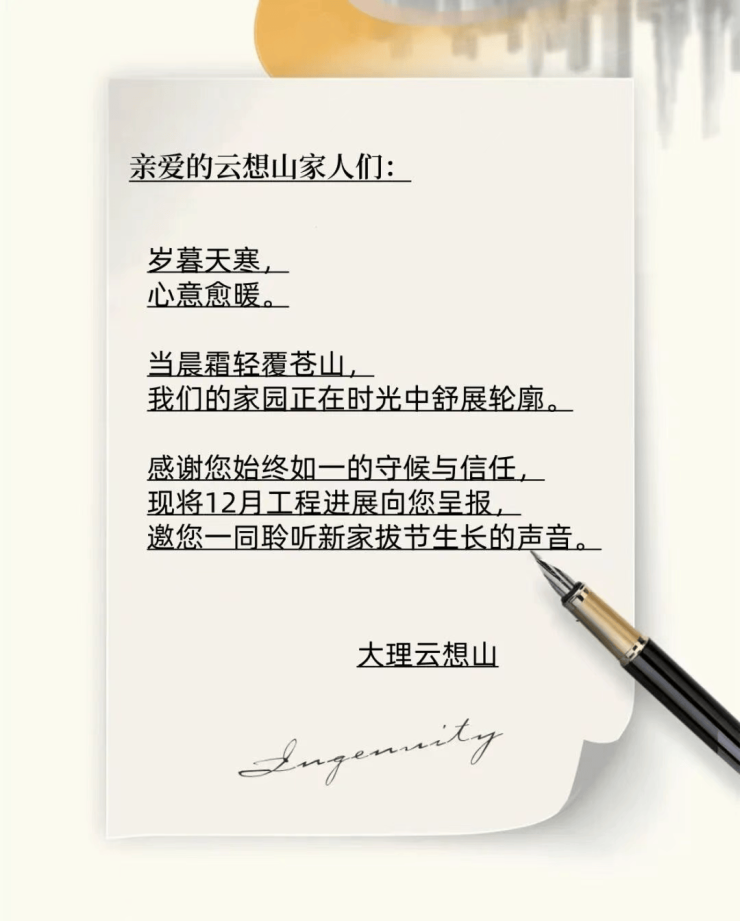 亲爱的云想山家人们：
岁暮天寒，
心意愈暖。
当晨霜轻覆苍山，
我们的家园正在时光中舒展轮廓。
感谢您始终如一的守候与信任，
现将12月工程进展向您呈报，
邀您一同聆听新家拔节生长的声音。
大理云想山
Ingenuity